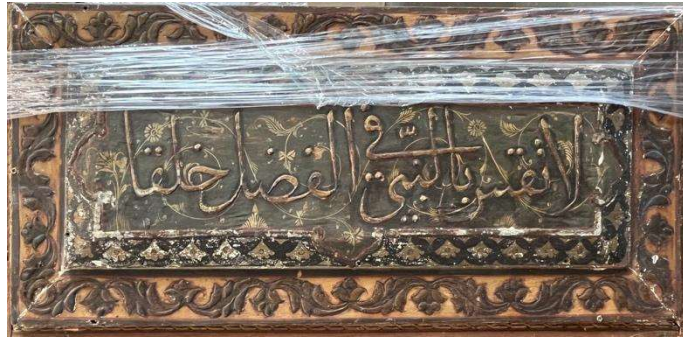 لا تقس بالنبي في الفضل خلقا